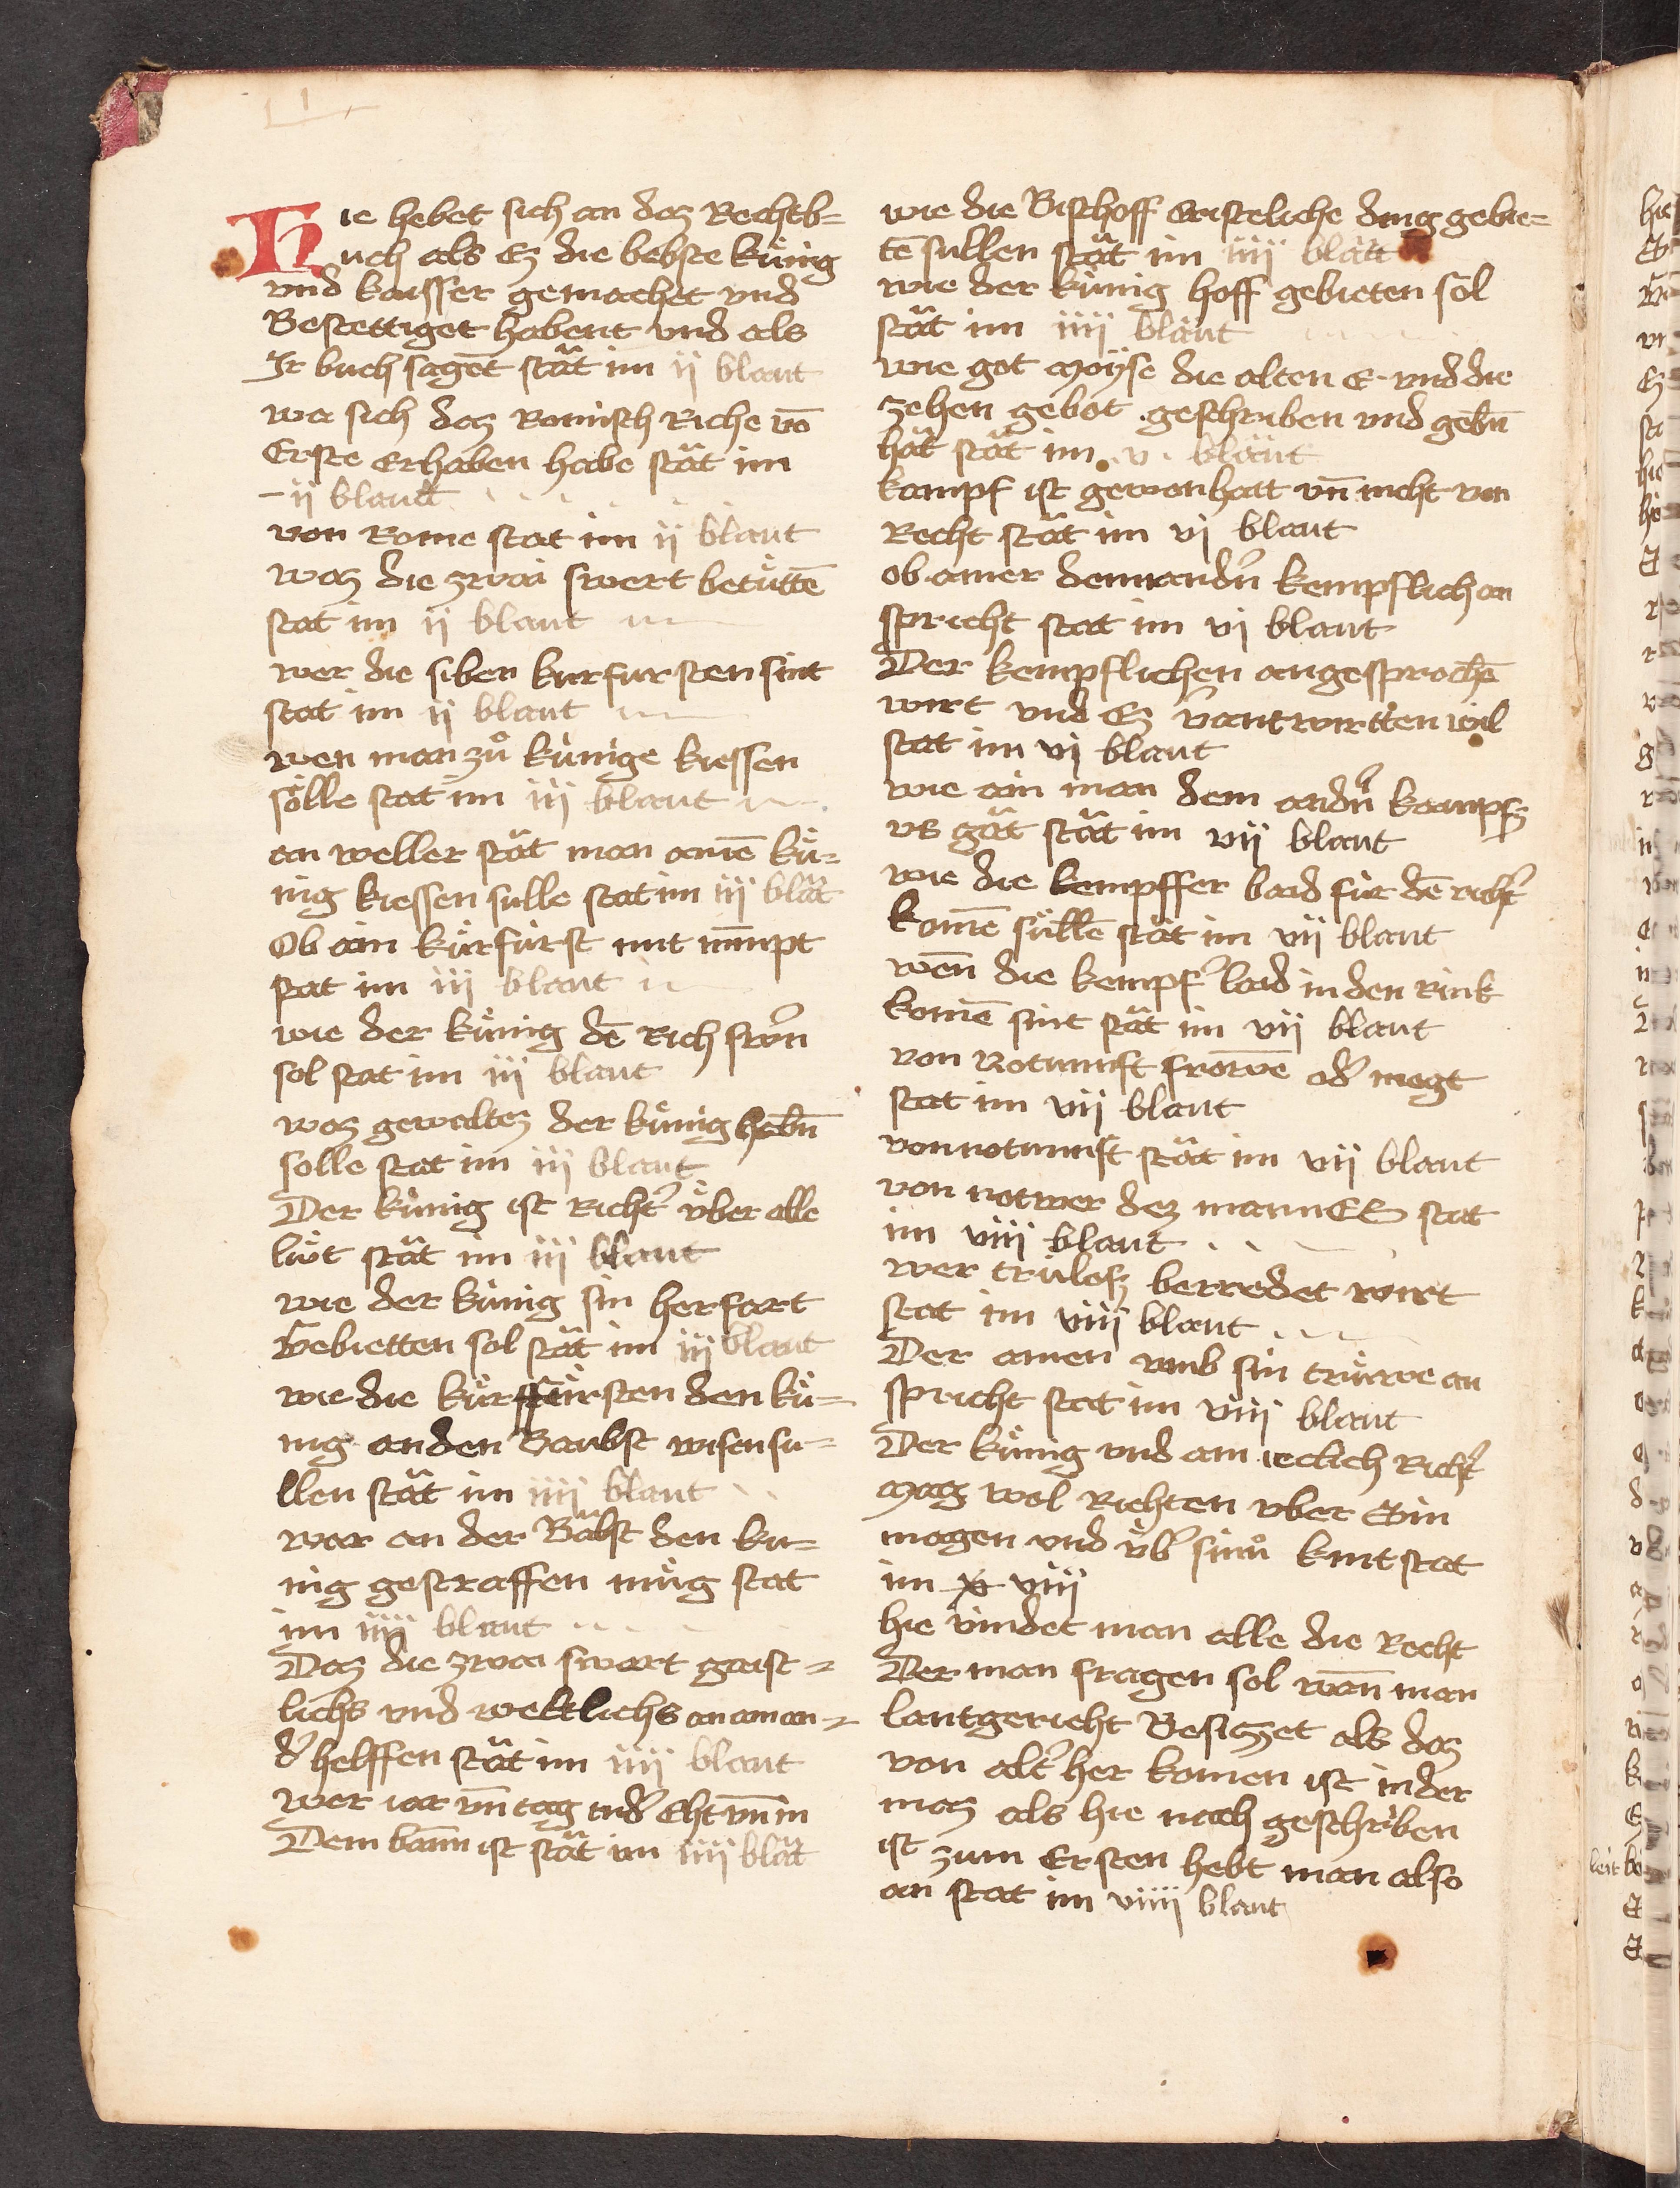 1
Hie hebet sich an daz Rechtb=
uch als Ez die bebste kǔnig
vnd kaisser gemachet vnd
Bestettiget habent vnd als
Jr buch sagēt stät im ij blaut
wa sich daz Romisch Riche vō
Erste erhaben habe stät im
– ij blautt
von Rome stat im ij blaut
waz die zwai swert betüttē
stat im ij blaut
wer die siben kurfursten sint
stat im ij blaut
wen man zů kunige kiessen
sölle stat im iij blaut
an weller stät man ainē kü=
nig kiessen sulle stat im iij blät
Ob ain kürfürst mit nimpt
stat im iij blaut
wie der künig dē Rich swern
sol stat im iij blaut
waz gewaltez der künig habn̄
solle stat im iij blaut
Der künig ist Richt' über alle
lüt stät im iij blaut
wie der künig sin herfart
Gebietten sol stät im iij blaut
wie die kürffürsten den kü=
nig an den Baubst wisen su=
llen stät im iiij blaut
war an der Bäbst den kü=
nig gestraffen müg stat
im iiij blaut
Daz die zwai swert gaist=
lichs vnd weltlichs an ainan=
d' helffen stät im iiij blaut
wer iar vn̄ tag in d' Eht vn̄ in
Dem bann ist stät im iiij blät
wie die Bischoff Cristeliche ding gebie=
tē sullen stät im iiij blätt
wie der künig hoff gebieten sol
stät im iiij blaut
wie got Moÿse die alten E vnd die
zehen gebot geschriben vnd gebn̄
hät stät im v blaut
kampf ist gewonhait vn̄ nicht von
Recht stät im vj blaut
ob ainer dem andn' kempflich an
spricht stat im vj blaut
Der kempflichen angesprochē
wirt vnd Ez v'antwurtten wil
stat im vj blaut
wie ain man dem andn' kampfz
vs gät stät im vij blaut
wie die kempffer baid für dē richt'
komē süllē stät im vij blaut
wēn die kempf' baid in den Rink
komē sint stät im vij blaut
von Notnunft frowē od' megt
stat im vij blaut
von notnunft stät im vij blaut
von notwer dez mannEs stat
im viij blaut
wer trülosz berredet wirt
stat im viij blaut
Der ainen vmb sin trüwe an
spricht stat im viij blaut
Der künig vnd ain ieclich Richt'
Mag wol Richten vber Sin
magen vnd üb' sinů kint stat
im viij
hie vindet man alle die Recht
Der man fragen sol wān man
lantgericht Besiczet als daz
von alt' her komen ist in der
maz als hie nach geschriben
ist zum Ersten hebt man also
an stat im viiij blaut